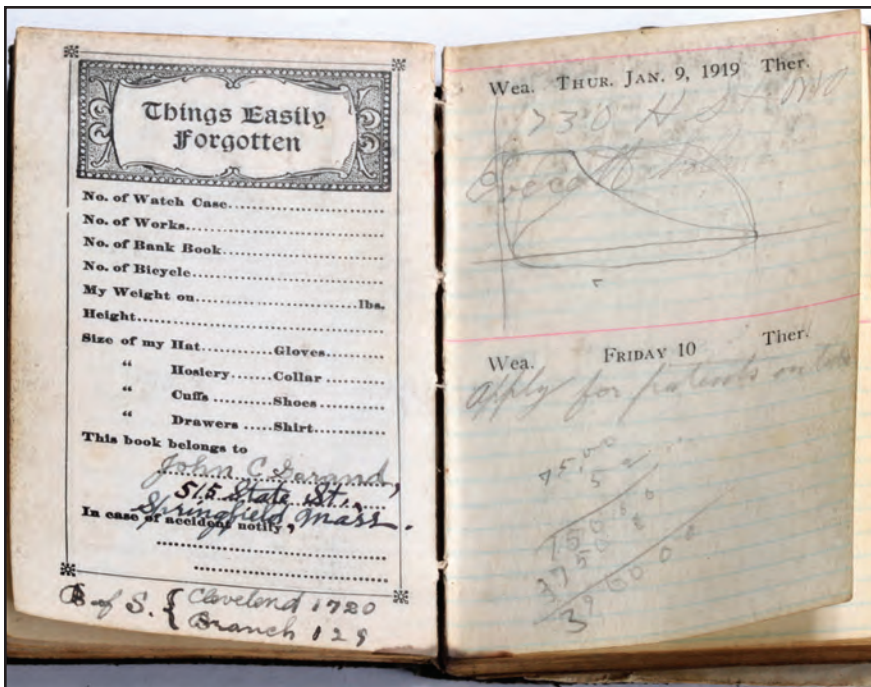 Things Easily
Forgotten
No. of Watch Case
No. of Works
No. of Bank Book
No. of Bicycle
My Weight on lbs.
Height
Size of my Hat Gloves
“ Hosiery Collar
“ Cuffs Shoes
“ Drawers Shirt
This book belongs to
John C Garand,
515 State St.,
In case of accident notify
Springfield, Mass.
B of S. { Cleveland 1720
Branch 129
Wea. THUR. JAN. 9, 1919 Ther.
730 H St
Wea. FRIDAY 10 Ther.
Apply for patents on